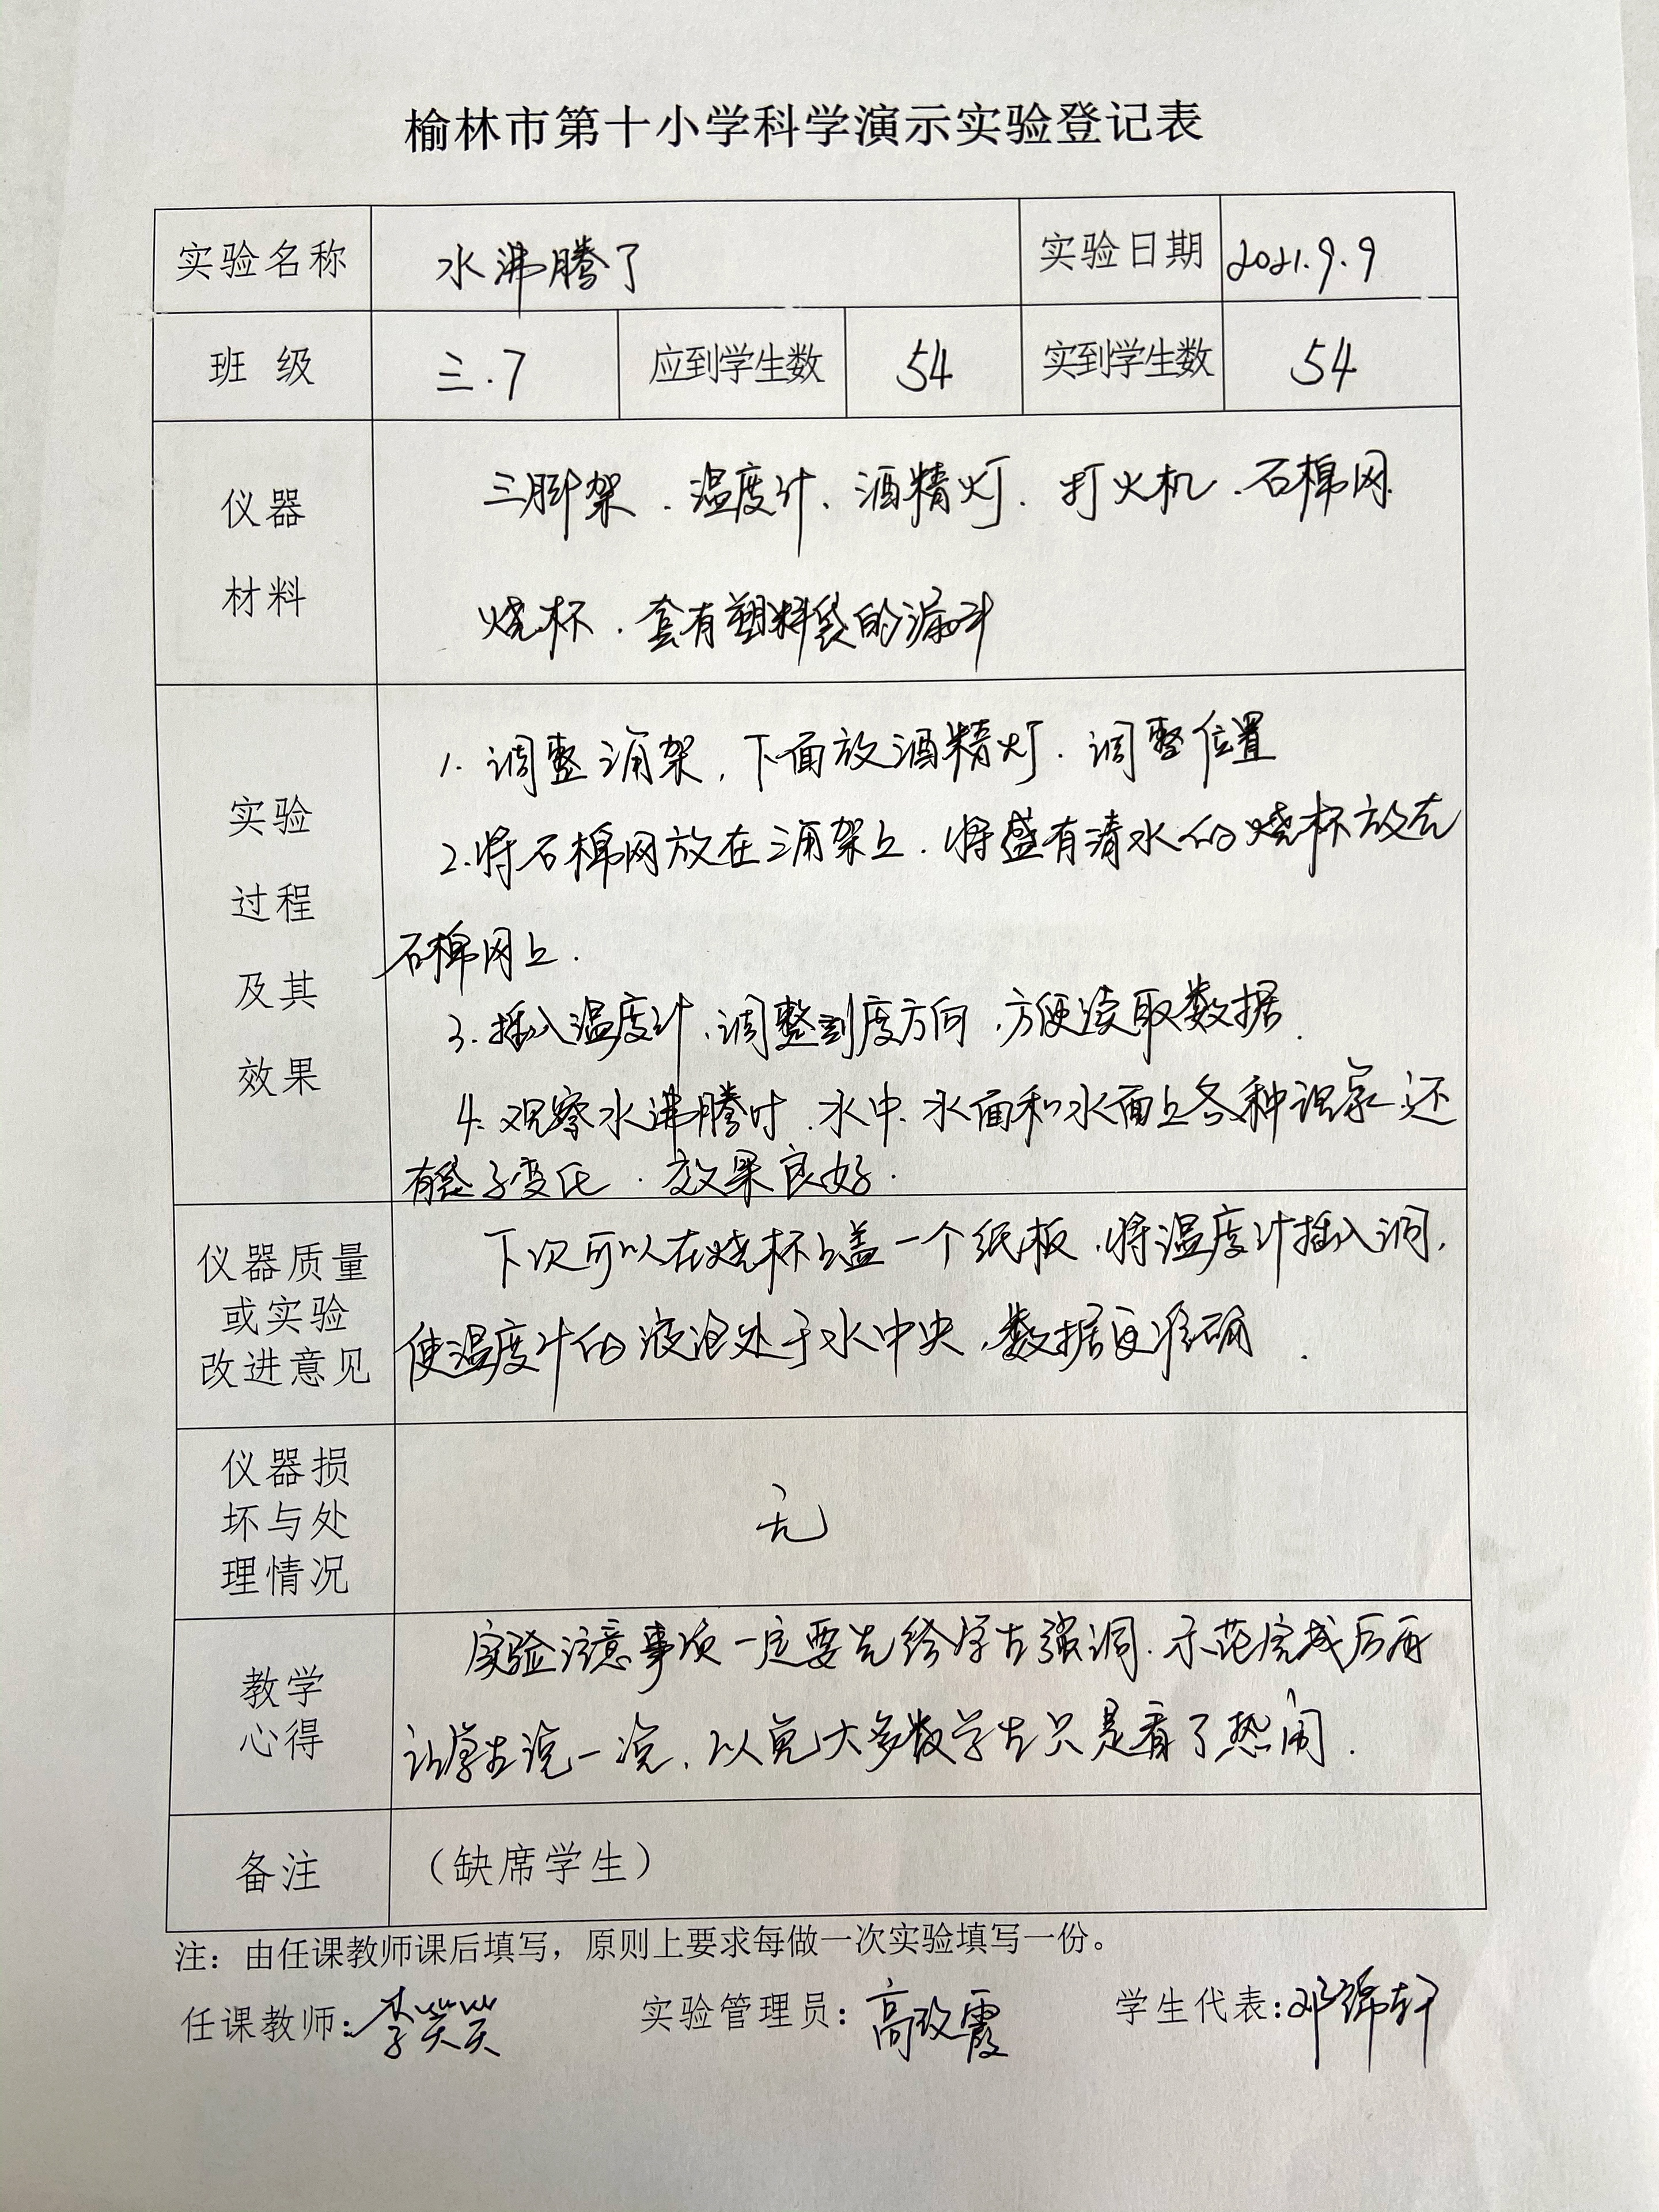 榆林市第十小学科学演示实验登记表
实验名称 水沸腾了 实验日期 2021.9.9
班 级 三.7 应到学生数 54 实到学生数 54
仪器 三脚架、温度计、酒精灯、打火机、石棉网
材料 烧杯、套有塑料袋的漏斗
1. 调整三角架,下面放酒精灯.调整位置
实验
2.将石棉网放在三角架上.将盛有清水的烧杯放在
过程
石棉网上.
及其
3.插入温度计,调整刻度方向,方便读取数据.
效果
4.观察水沸腾时.水中.水面和水面上各种现象.还
有袋子变化.效果良好.
仪器质量 下次可以在烧杯上盖一个纸板,将温度计插入洞,
或实验
改进意见 使温度计的液泡处于水中央,数据更准确.
仪器损
坏与处 无
理情况
实验注意事项一定要先给学生强调.示范完成后再
教学
心得 让学生说一说,以免大多数学生只是看了热闹.
备注 (缺席学生)
注:由任课教师课后填写,原则上要求每做一次实验填写一份。
任课教师:李笑笑 实验管理员:高改霞 学生代表:邓锦轩